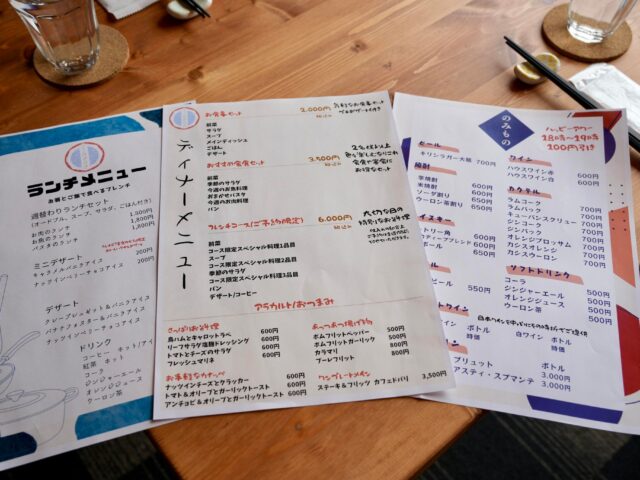 ランチメニュー
お箸とご飯で食べるフレンチ
週替わりランチセット
(オードブル、スープ、サラダ、ごはん付き)
お肉のランチ 1,500円
お魚のランチ 1,800円
パスタのランチ 1,800円
ミニデザート
キャラメルバニラアイス 200円
ナッツインベリーチョコアイス 200円
デザート
クレープシュゼット&バニラアイス
バナナフォスター&バニラアイス
ナッツインベリーチョコアイス
ドリンク
コーヒー ホット/アイ
紅茶 ホット
コーラ
ジンジャーエール
オレンジジュース
ウーロン茶
ディナーメニュー
お食事セット 2,000円
税込み
前菜
サラダ
スープ
メインディッシュ
ごはん
デザート
おすすめ定食セット 3,500円
税込み
前菜
季節のサラダ
今週のお魚料理
おまかせパスタ
今週のお肉料理
パン
フレンチコース(ご予約限定) 6,000円
税込み
前菜
コース限定スペシャル料理1品目
スープ
コース限定スペシャル料理2品目
季節のサラダ
コース限定スペシャル料理3品目
パン
デザート/コーヒー
大切な日の
特別なお料理
アラカルト/おつまみ
さっぱりお料理
鳥ハムとキャロットラペ 600円
リーフサラダ塩麹ドレッシング 600円
トマトとチーズのサラダ 600円
フレッシュマリネ 600円
お手軽なカナッペ
ナッツインチーズとクラッカー 600円
トマト&オリーブとガーリックトースト 600円
アンチョビ&オリーブとガーリックトースト 600円
あつあつ揚げ物
ポムフリットペッパー 500円
ポムフリットガーリック 500円
カラマリ 800円
プーレフリット 800円
ワンプレートメイン
ステーキ&フリック カフェドパリ 3,500円
のみもの
ハッピーアワー
18時〜19時
100円引き
ビール
キリシラガー大瓶 700円
焼酎
芋焼酎 600円
米焼酎 600円
ソーダ割り 650円
ウーロン茶割り 650円
イスキー
550円
650円
500円
ワイン
ハウスワイン赤 600円
ハウスワイン白 600円
カクテル
ラムコーク 700円
ラムバック 700円
キューバンスクリュー 700円
ジンコーク 700円
ジンバック 700円
オレンジブロッサム 700円
カシスオレンジ 700円
カシスウーロン 700円
ソフトドリンク
コーラ 500円
ジンジャーエール 500円
オレンジジュース 500円
ウーロン茶 500円
白ワイン ボトル
時価
ボトル
時価
ブリュット ボトル 3,000円
アスティ・スプマンテ 3,000円